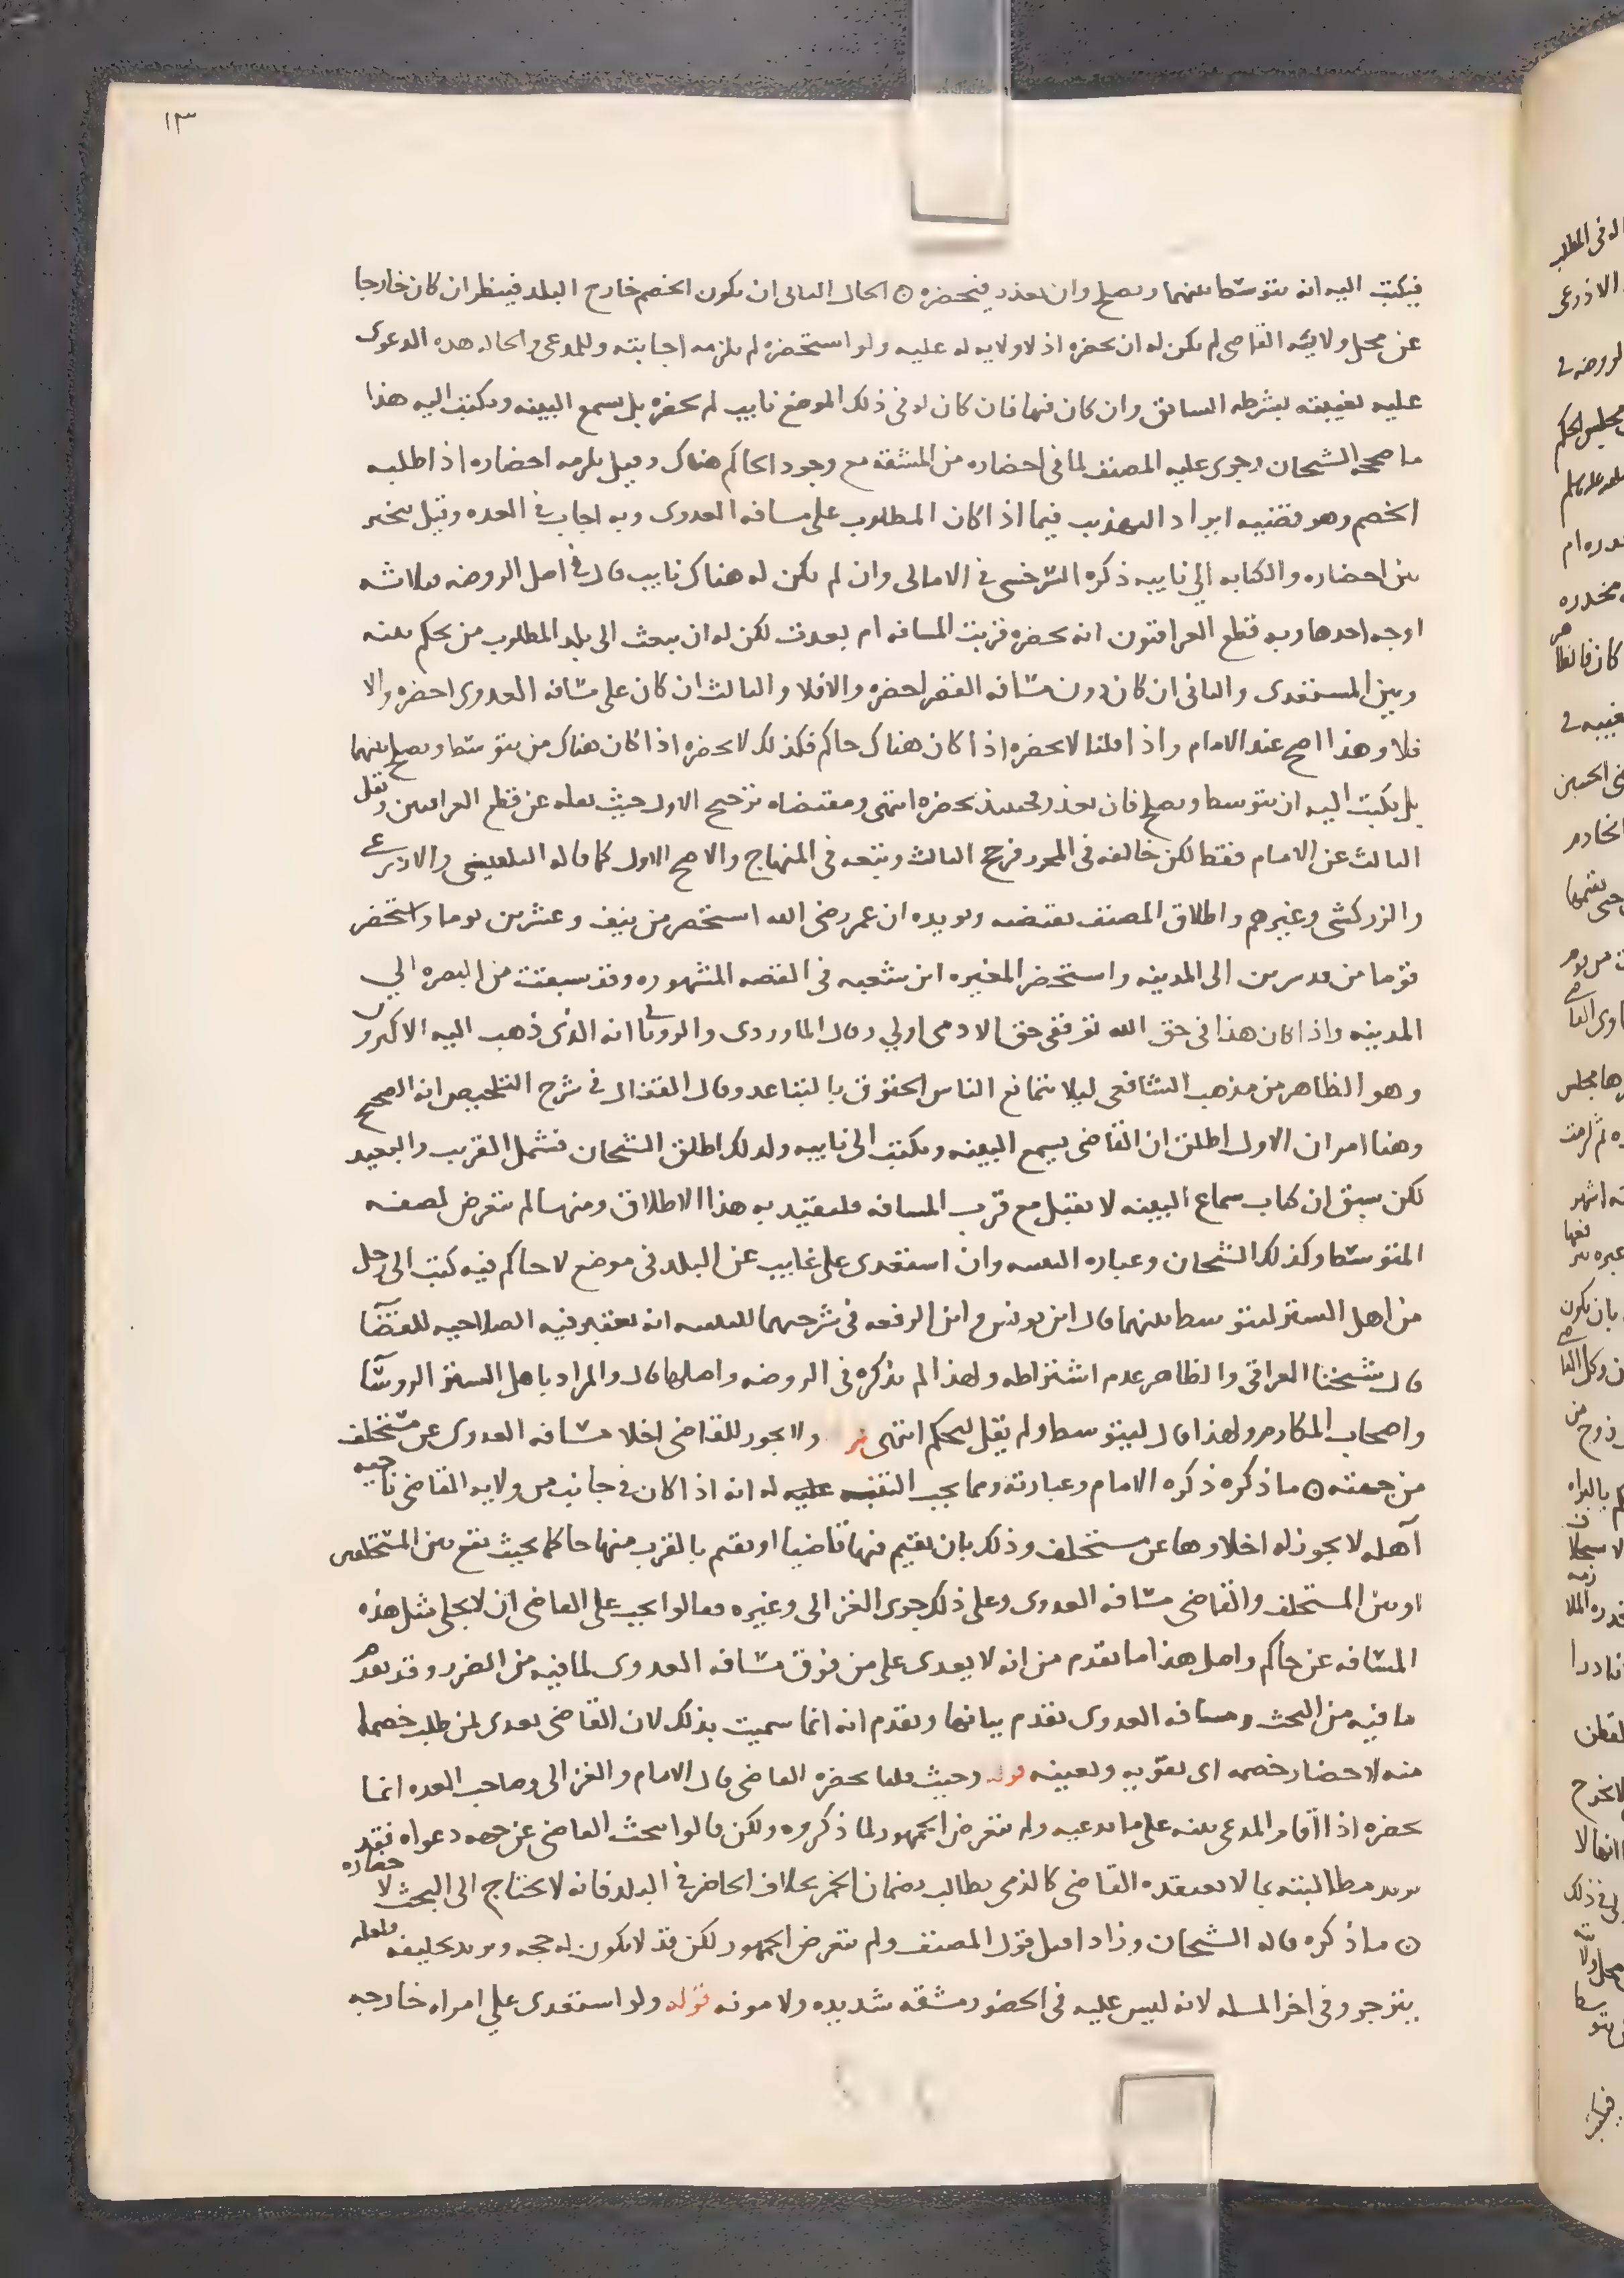 ١٣
فيكتب اليه ان يتوسط بينهما ويصلح وان تعذر فيحضره ۞ الحال الثاني ان يكون الخصم خارج البلد فينظر ان كان خارجا
عن محل ولاية القاضي لم يكن له ان يحضره اذ لا ولاية له عليه ولو استحضره لم يلزمه اجابته وللمدعي والحالة هذه الدعوى
عليه بغيبته بشرطه السابق وان كان فيها فان كان له في ذلك الموضع نايب لم يحضره بل يسمع البينه ويكتب اليه هذا
ما صححه الشيخان وجرى عليه المصنف لما في احضاره من المشقة مع وجود الحاكم هناك وقيل يلزمه احضاره اذا طلبه
الخصم وهو قضية ايراد التهذيب فيما اذا كان المطلوب على مسافه العدوى وبه اجاب في العده وقيل يتخير
بين احضاره والكتابه الي نايبه ذكره السرخسي في الامالى وان لم يكن له هناك نايب قال في اصل الروضه ثلاثه
اوجه احدها وبه قطع العراقيون انه يحضره قربت المسافه ام بعدت لكن له ان يبعث الى بلد المطلوب من يحكم بينه
وبين المستعدى والثاني ان كان دون مسافه القصر احضره والا فلا والثالث ان كان على مسافه العدوى احضره والا
فلا وهذا اصح عند الامام واذا قلنا لا يحضره اذا كان هناك حاكم فكذلك لا يحضره اذا كان هناك من يتوسط ويصلح بينهما
بل يكتب اليه ان يتوسط ويصلح فان تعذر فحينئذ يحضره انتهى ومقتضاه ترجيح الاول حيث نقله عن قطع العراقيين ونقل
الثالث عن الامام فقط لكن خالفه في المحرر فرجح الثالث وتبعه في المنهاج والاصح الاول كما قاله البلقيني والاذرعي
والزركشي وغيرهم واطلاق المصنف يقتضيه ويويده ان عمر رضى الله استحضر من نيف وعشرين يوما واستحضر
قوما من الى المدينه واستحضر المغيره ابن شعبه في القصه المشهوره وقد سيقت من البصره الي
المدينه واذا كان هذا في حق الله تع ففي حق الادمى اولي وقال الماوردى والرويانى انه الذى ذهب اليه الاكثرون
وهو الظاهر من مذهب الشافعى ليلا يتمانع الناس الحقوق بالتباعد وقال القفال في شرح التلخيص انه الصحيح
وهنا امران الاول اطلق ان القاضي يسمع البينه ويكتب الى نايبه ولذلك اطلق الشيخان فشمل القريب والبعيد
لكن سبق ان كتاب سماع البينه لا يقبل مع قرب المسافه فليتقيد به هذا الاطلاق ومنها لم يتعرض لصفه
المتوسط وكذلك الشيخان وعباره التنبيه وان استعدى على غايب عن البلد في موضع لا حاكم فيه كتب الى رجل
من اهل الستر ليتوسط بينهما قال ابن يونس وابن الرفعه في شرحيهما للتنبيه انه يعتبر فيه الصلاحيه للقضا
قال شيخنا العراقي والظاهر عدم اشتراطه ولهذا لم يذكره في الروضه واصلها قال والمراد باهل الستر الروسا
واصحاب المكارم ولهذا قال ليتوسط ولم يقل ليحكم انتهى ولا يجوز للقاضي اخلا مسافه العدوى عن مستخلف
من جهته ۞ ما ذكره ذكره الامام وعبارته ومما يجب التنبه عليه له انه اذا كان في جانب من ولايه القاضي ناحيه
آهله لا يجوز له اخلاوها عن مستخلف وذلك بان يقيم فيها قاضيا او يقيم بالقرب منها حاكما بحيث تقع بين المستخلفين
او بين المستخلف والقاضي مسافه العدوى وعلى ذلك جرى الغزالى وغيره فقالوا يجب على القاضى ان لا يخلى مثل هذه
المسافه عن حاكم واصل هذا ما تقدم من انه لا يعدى على من فوق مسافه العدوى لما فيه من الضرر وقد تقدم
ما فيه من البحث ومسافه العدوى تقدم بيانها وتقدم انه انما سميت بذلك لان القاضي يعدى لمن طلب خصما
منه لاحضار خصمه اى يقويه ويعينه قوله وحيث قلنا يحضره القاضي قال الامام والغزالى وصاحب العده انما
يحضره اذا اقام المدعى بينه على ما يدعيه ولم يتعرض الجمهور لما ذكروه ولكن قالوا يبحث القاضي عن جهه دعواه فقد
يريد مطالبته بما لا يعتقده القاضى كالذمى يطالب بضمان الخمر بخلاف الحاضر في البلد فانه لا يحتاج الى البحث لاحضاره
۞ ما ذكره قاله الشيخان وزادا قبل قول المصنف ولم يتعرض الجمهور لكن قد لا يكون له حجه ويريد تحليفه فلعله
ينزجر وفي اخر المسله لانه ليس عليه في الحضور مشقه شديده ولا مونه قوله ولو استعدى علي امراه خارجه